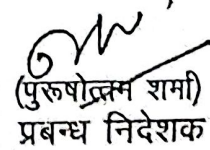 (पुरूषोत्तम शर्मा)
प्रबन्ध निदेशक